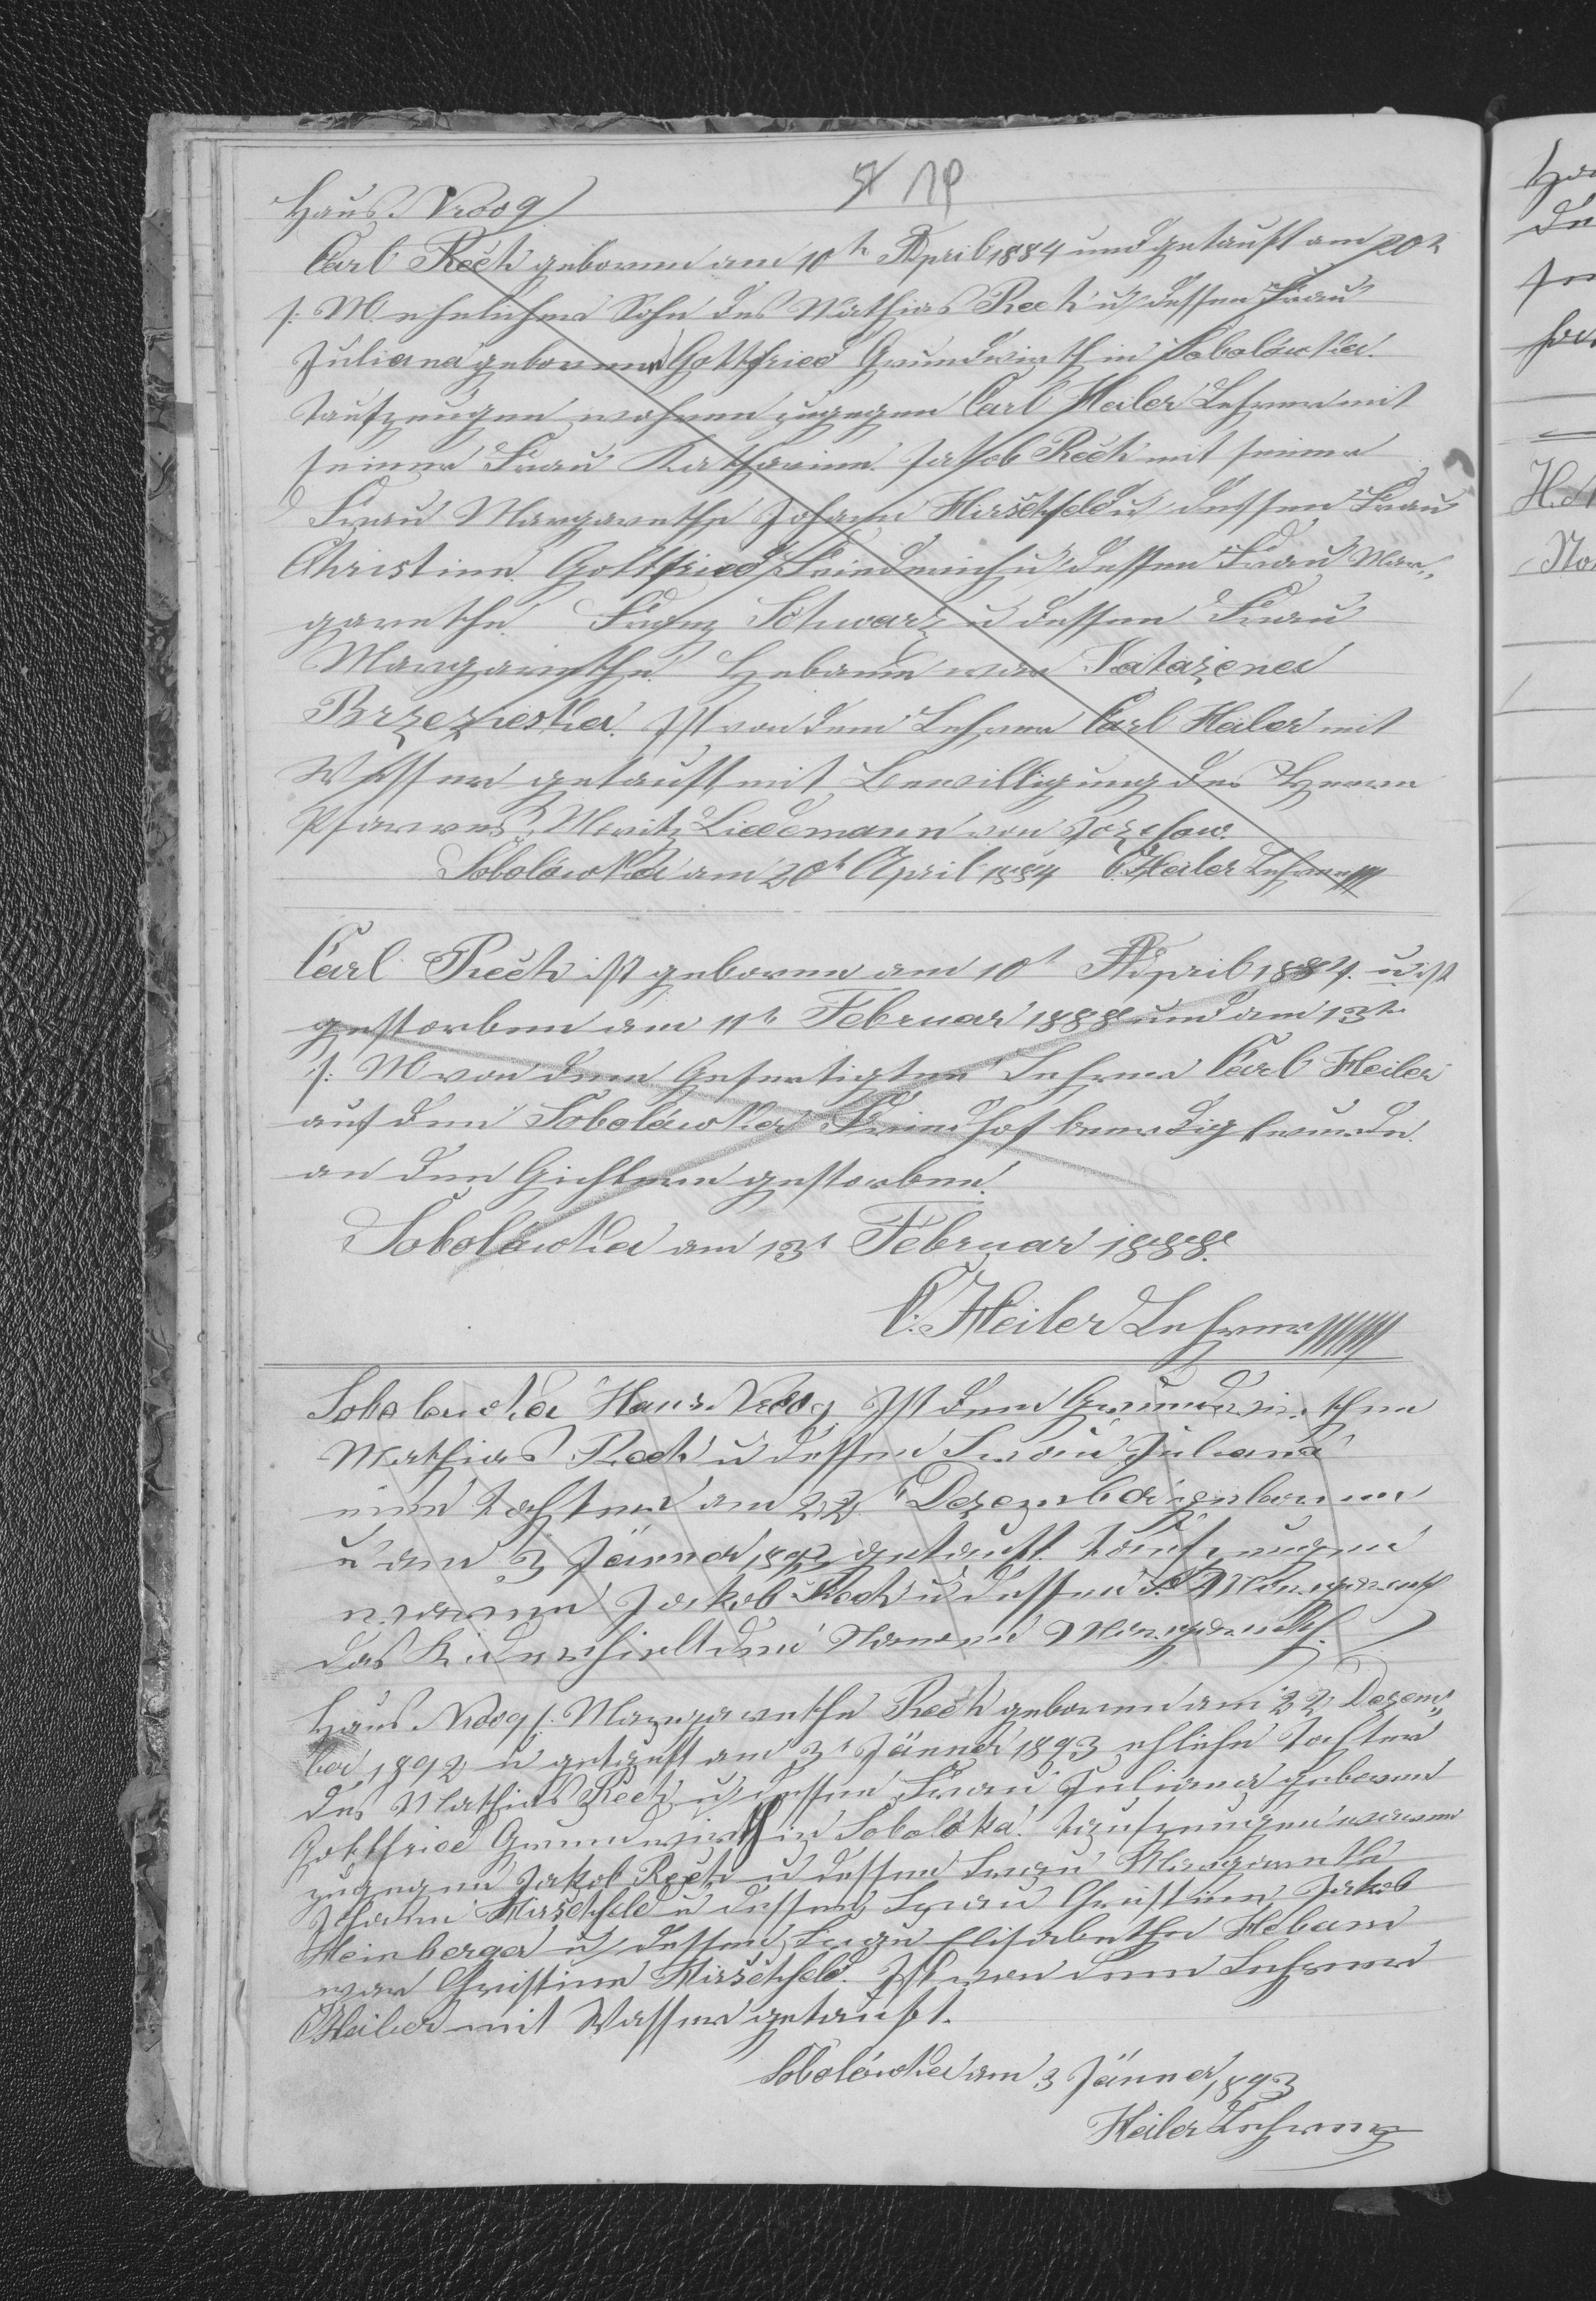 19
Haus Nro 9
Carl Rech geboren am 10t April 1884 und getauft am 20t
l: M ehelicher Sohn des Mathias Rech u dessen Frau
Juliana geborene Gottfried Grundwirth in Sobolówka.
Taufzeugen wahren zugegen Carl Heiler Lehrer mit
seiner Frau Katharina. Jakob Rech mit seiner
Frau Margarethe Johann Hirschfeld u dessen Frau
Christine. Gottfried Friederich u dessen Frau Mar„
garethe. Franz Schwarz u dessen Frau
Margarethe. Hebame war Katażena
Brzezieska. Ist von dem Lehrer Carl Heiler mit
Wasser getauft mit Bewilligung des Herrn
Pfarrers Moritz Liedemann von Jozefow.
Sobolówka am 20t April 1884 C. Heiler Lehrer
Carl Rech ist geboren am 10t April 1884. u ist
gestorben am 11t Februar 1888 und am 13t
l: M von dem Gefertigten Lehrer Carl Heiler
auf dem Sobolówka Friedhof beerdigt wurde.
an den Gichtern gestorben.
Sobolówka am 13t Februar 1888.
C: Heiler Lehrer
Sobolowka Haus Nro 9 Ist dem Grundwirthen
Mathias Rech u dessen Frau Juliana
eine Tochter am 22t Dezember geboren
u am 3 Jänner 1893 getauft. Taufzeugen
waren Jakob Rech u dessen F. Margareth
das Kind erhielt den Namen Margareth.
Haus Nro 9 l: Margarethe Rech geboren am 22 Dezem„
ber 1892 u getauft am 3t Jänner 1893 ehliche Tochter
des Mathias Rech u dessen Frau Juliana geborene
Gottfried Grundwirth in Sobolóka. Taufzeugen waren
zugegen Jakob Rech u dessen Frau Margarethe
Johann Hirschfeld u dessen Frau Christine Jakob
Heinberger u dessen Frau Elisabetha Hebame
war Christine Hirschfeld. Ist von dem Lehrer
C Heiler mit Wasser getauft.
Sobolówka am 3 Jänner 1893
Heiler Lehrer